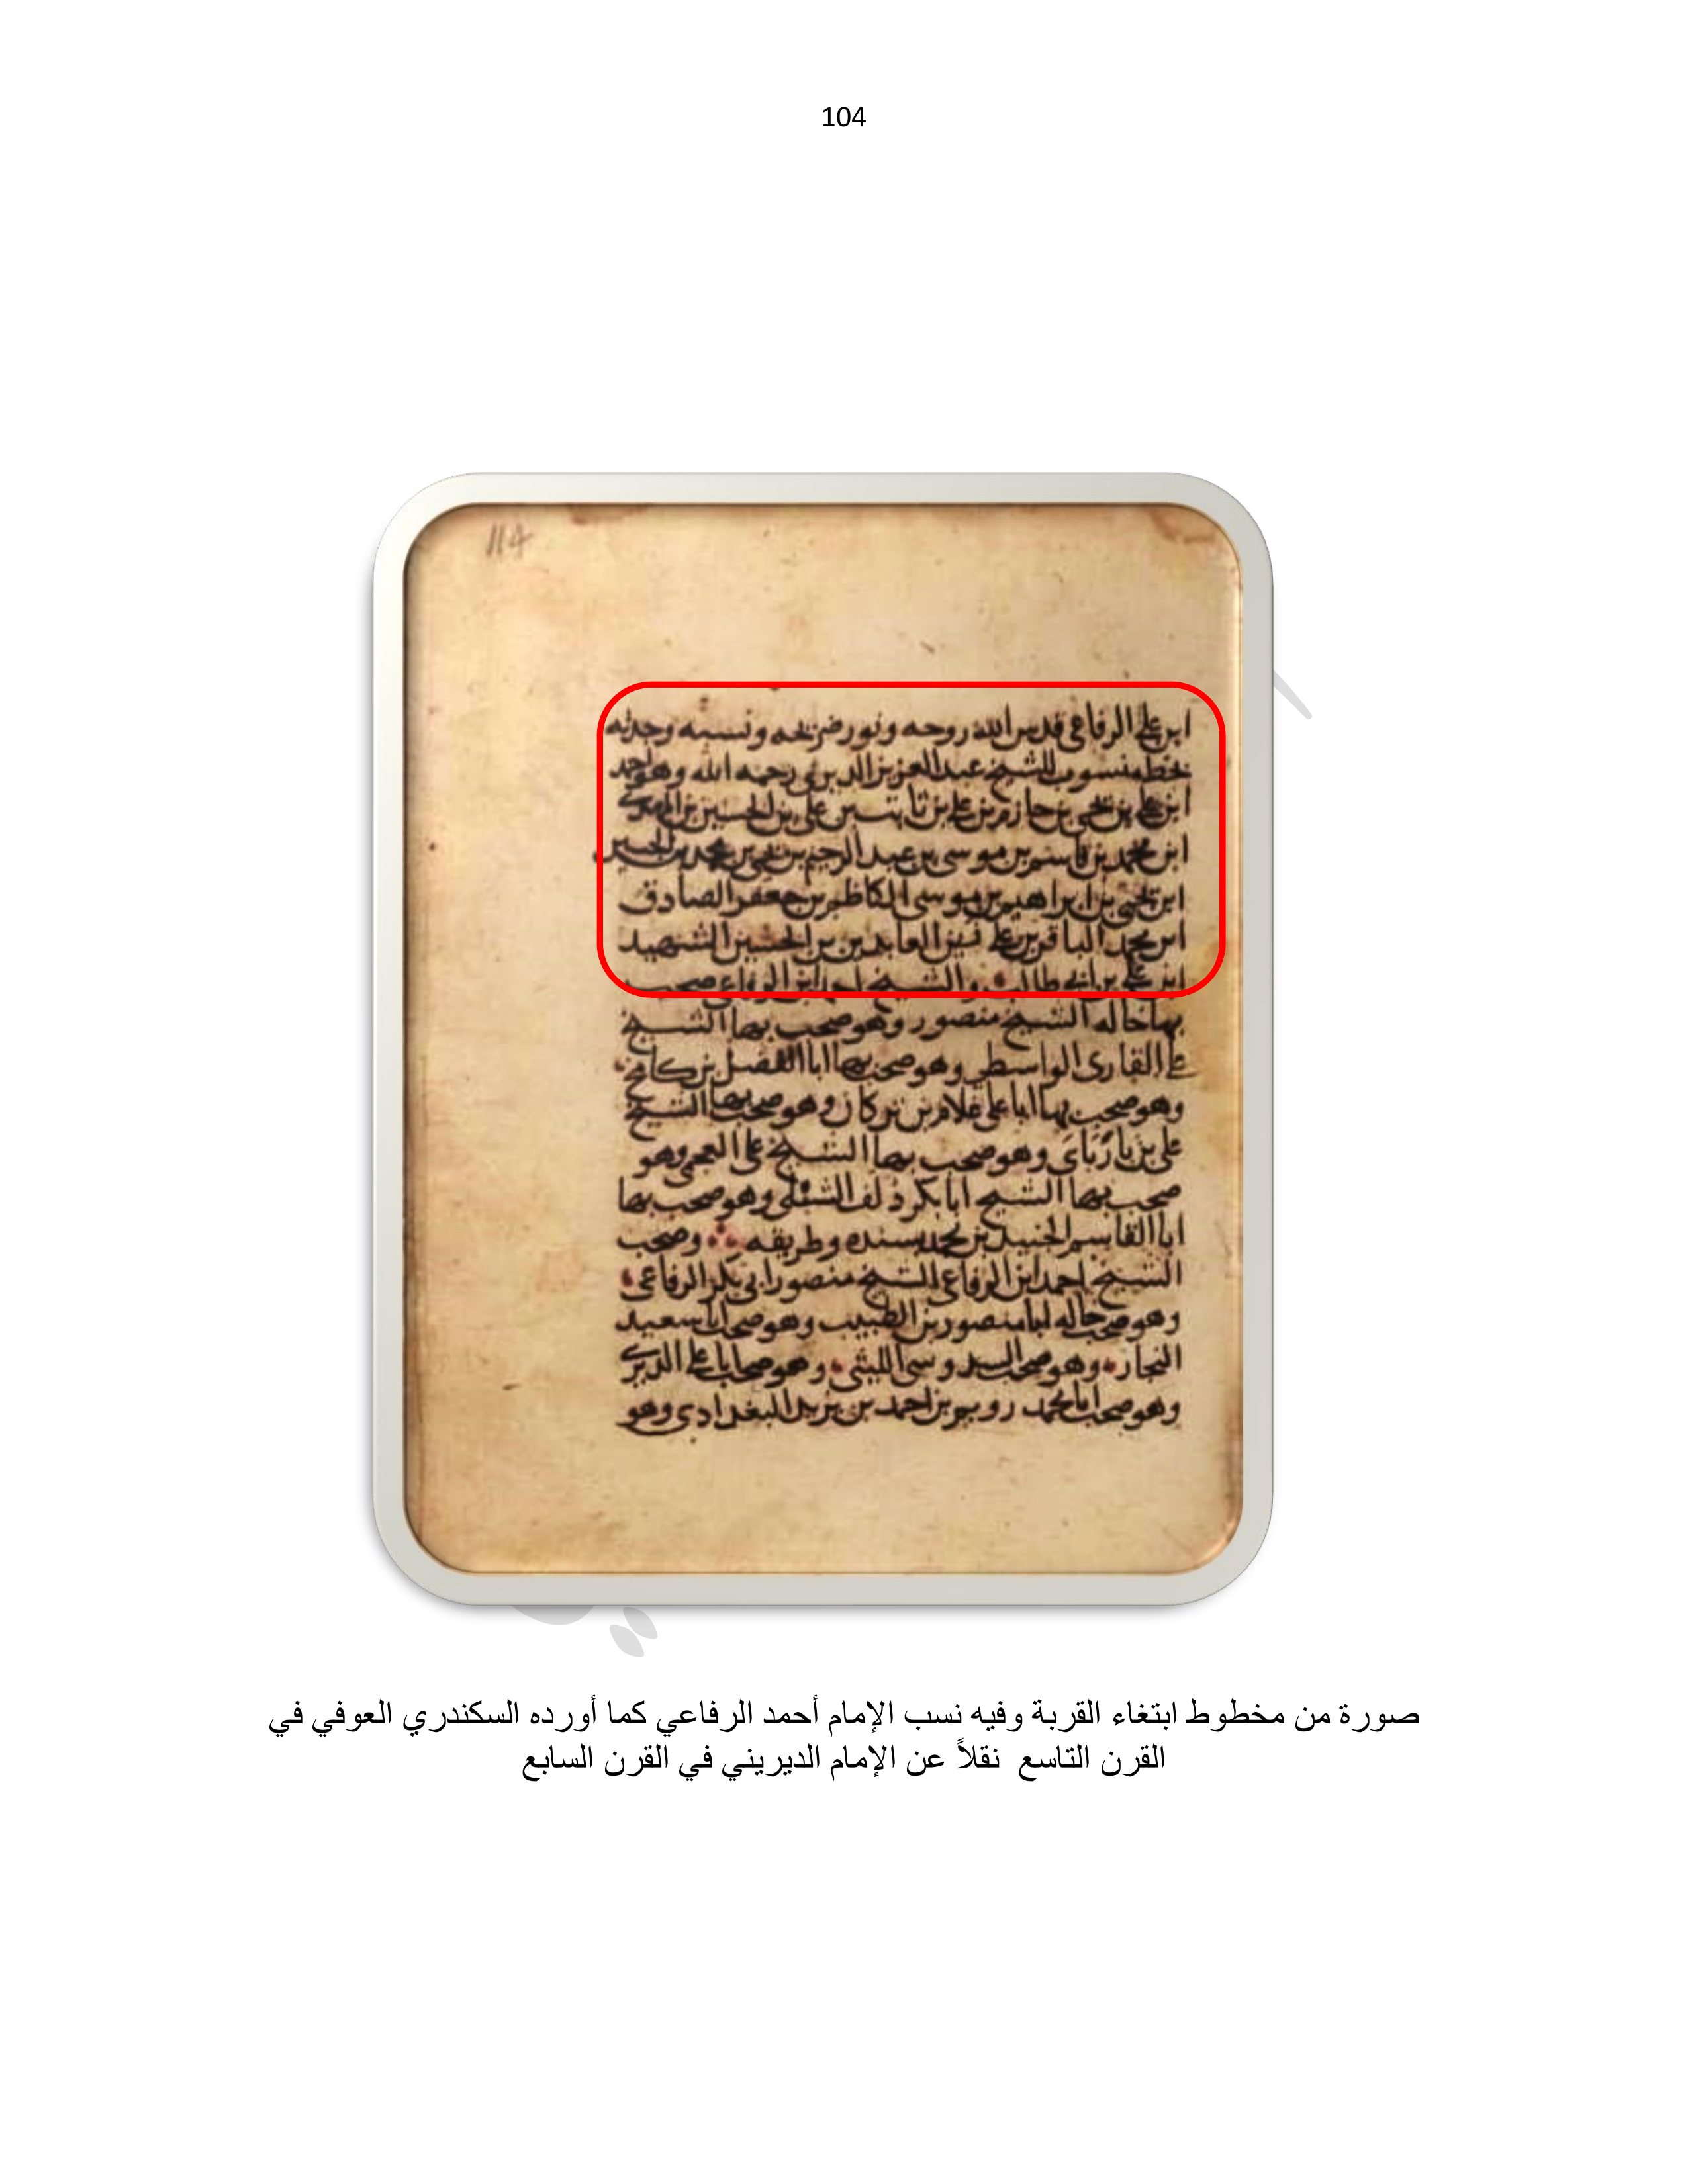 104
114
ابن علي الرفاعي قدس الله روحه ونور ضريحه ونسبه وجدته
بخط منسوب للشيخ عبد العزيز الديريني رحمه الله وهو احمد
ابن علي بن يحيى بن حازم بن علي بن ثابت بن علي بن الحسين بن المهدي
ابن محمد بن قاسم بن موسى بن عبد الرحيم بن يحيى بن محمد بن الحسين
ابن يحيى بن ابراهيم بن موسى الكاظم بن جعفر الصادق
ابن محمد الباقر بن علي زين العابدين بن الحسين الشهيد
ابن علي بن ابي طالب والشيخ احمد ابن الرفاعي صحب
بها خاله الشيخ منصور وهو صحب بها الشيخ
علي القارى الواسطي وهو صحب بها ابا الفضل بن كامخ
وهو صحب بها ابا علي غلام بن تركان وهو صحب بها الشيخ
علي بن بارباي وهو صحب بها الشيخ علي العجمي وهو
صحب بها الشيخ ابا بكر دلف الشبلي وهو صحب بها
ابا القاسم الجنيد بن محمد بسنده وطريقه وصحب
الشيخ احمد ابن الرفاعي الشيخ منصور ابي بكر الرفاعي
وهو صحب خاله ابا منصور بن الطبيب وهو صحب ابا سعيد
النجار وهو صحب وهو صحب ابا علي
وهو صحب ابا محمد رويم بن احمد بن يزيد البغدادي وهو
صورة من مخطوط ابتغاء القربة وفيه نسب الإمام أحمد الرفاعي كما أورده السكندري العوفي في
القرن التاسع نقلاً عن الإمام الديريني في القرن السابع